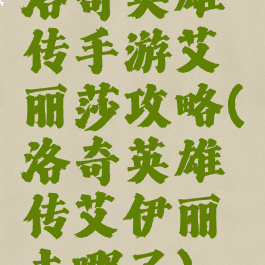 洛奇英雄
传手游艾
丽莎攻略(
洛奇英雄
传艾伊丽
去哪了)